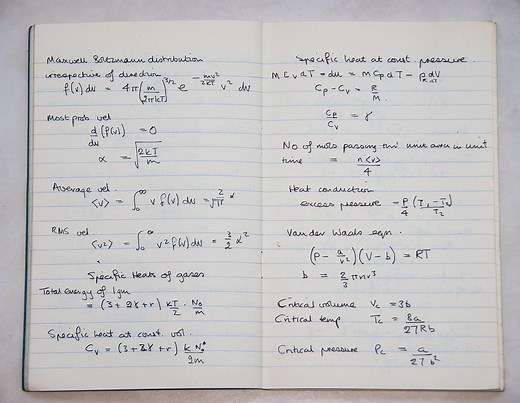 Maxwell Boltzmann distribution
irrespective of direction
f(v) dv = 4π (m/2πkT)^3/2 e^-mv²/2kT v² dv
Most prob vel
d/dv (f(v)) = 0
α = √(2kT/m)
Average vel.
<v> = ∫₀^∞ v f(v) dv = 2/√π α
RMS vel
<v²> = ∫₀^∞ v² f(v) dv = 3/2 α²
Specific Heats of gases
Total energy of 1gm
= (3 + 2γ + r) kT/2 · N₀/m
Specific heat at const. vol.
Cv = (3 + 2γ + r) k N₀/2m
Specific heat at const. pressure
m Cv dT = du = m Cp dT - p dV
R dT
Cp - Cv = R/M
Cp/Cv = γ
No of mols passing thro' unit area in unit
time = n<v>/4
Heat conduction
excess pressure = P/4 (T₁ - T₂)/T₂
Van der Waals eqn.
(P - a/v²)(V - b) = RT
b = 2/3 π n r³
Critical volume Vc = 3b
Critical temp Tc = 8a/27Rb
Critical pressure Pc = a/27b²